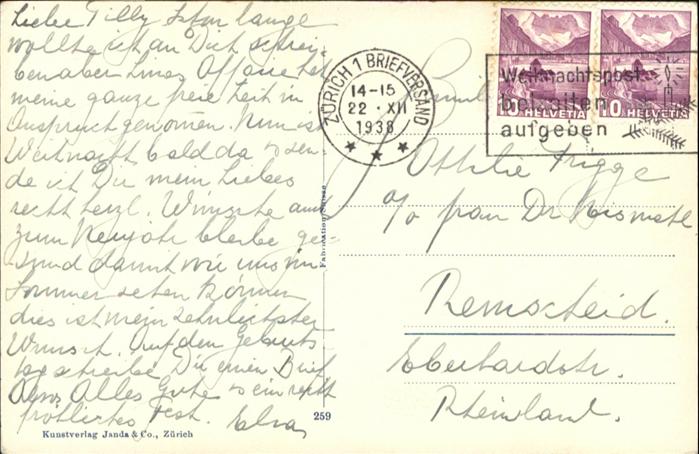 Liebe Tilly schon lange
wollte ich an Dich schrei-
ben aber Linas Affaire hat
meine ganze freie Zeit in
Anspruch genommen. Nun ist
Weihnacht bald da & sen-
de ich Dir mein Liebes
recht herzl. Wünsche auch
zum Neujahr bleibe ge-
sund damit wir uns im
Sommer sehen können
dies ist mein sehnlichster
Wunsch. Auf den Geburts-
tag schreibe Dir einen Brief
Also Alles Gute & ein recht
fröhliches Fest. Elsa
Kunstverlag Janda & Co., Zürich
259
ZÜRICH 1 BRIEFVERSAND
14-15
22 · XII
1938
Weihnachtspost
beizeiten
aufgeben
10 HELVETIA
10 HELVETIA
Ottilie Frigge
c/o frau Dr
Remscheid.
Eberhardstr.
Rheinland.